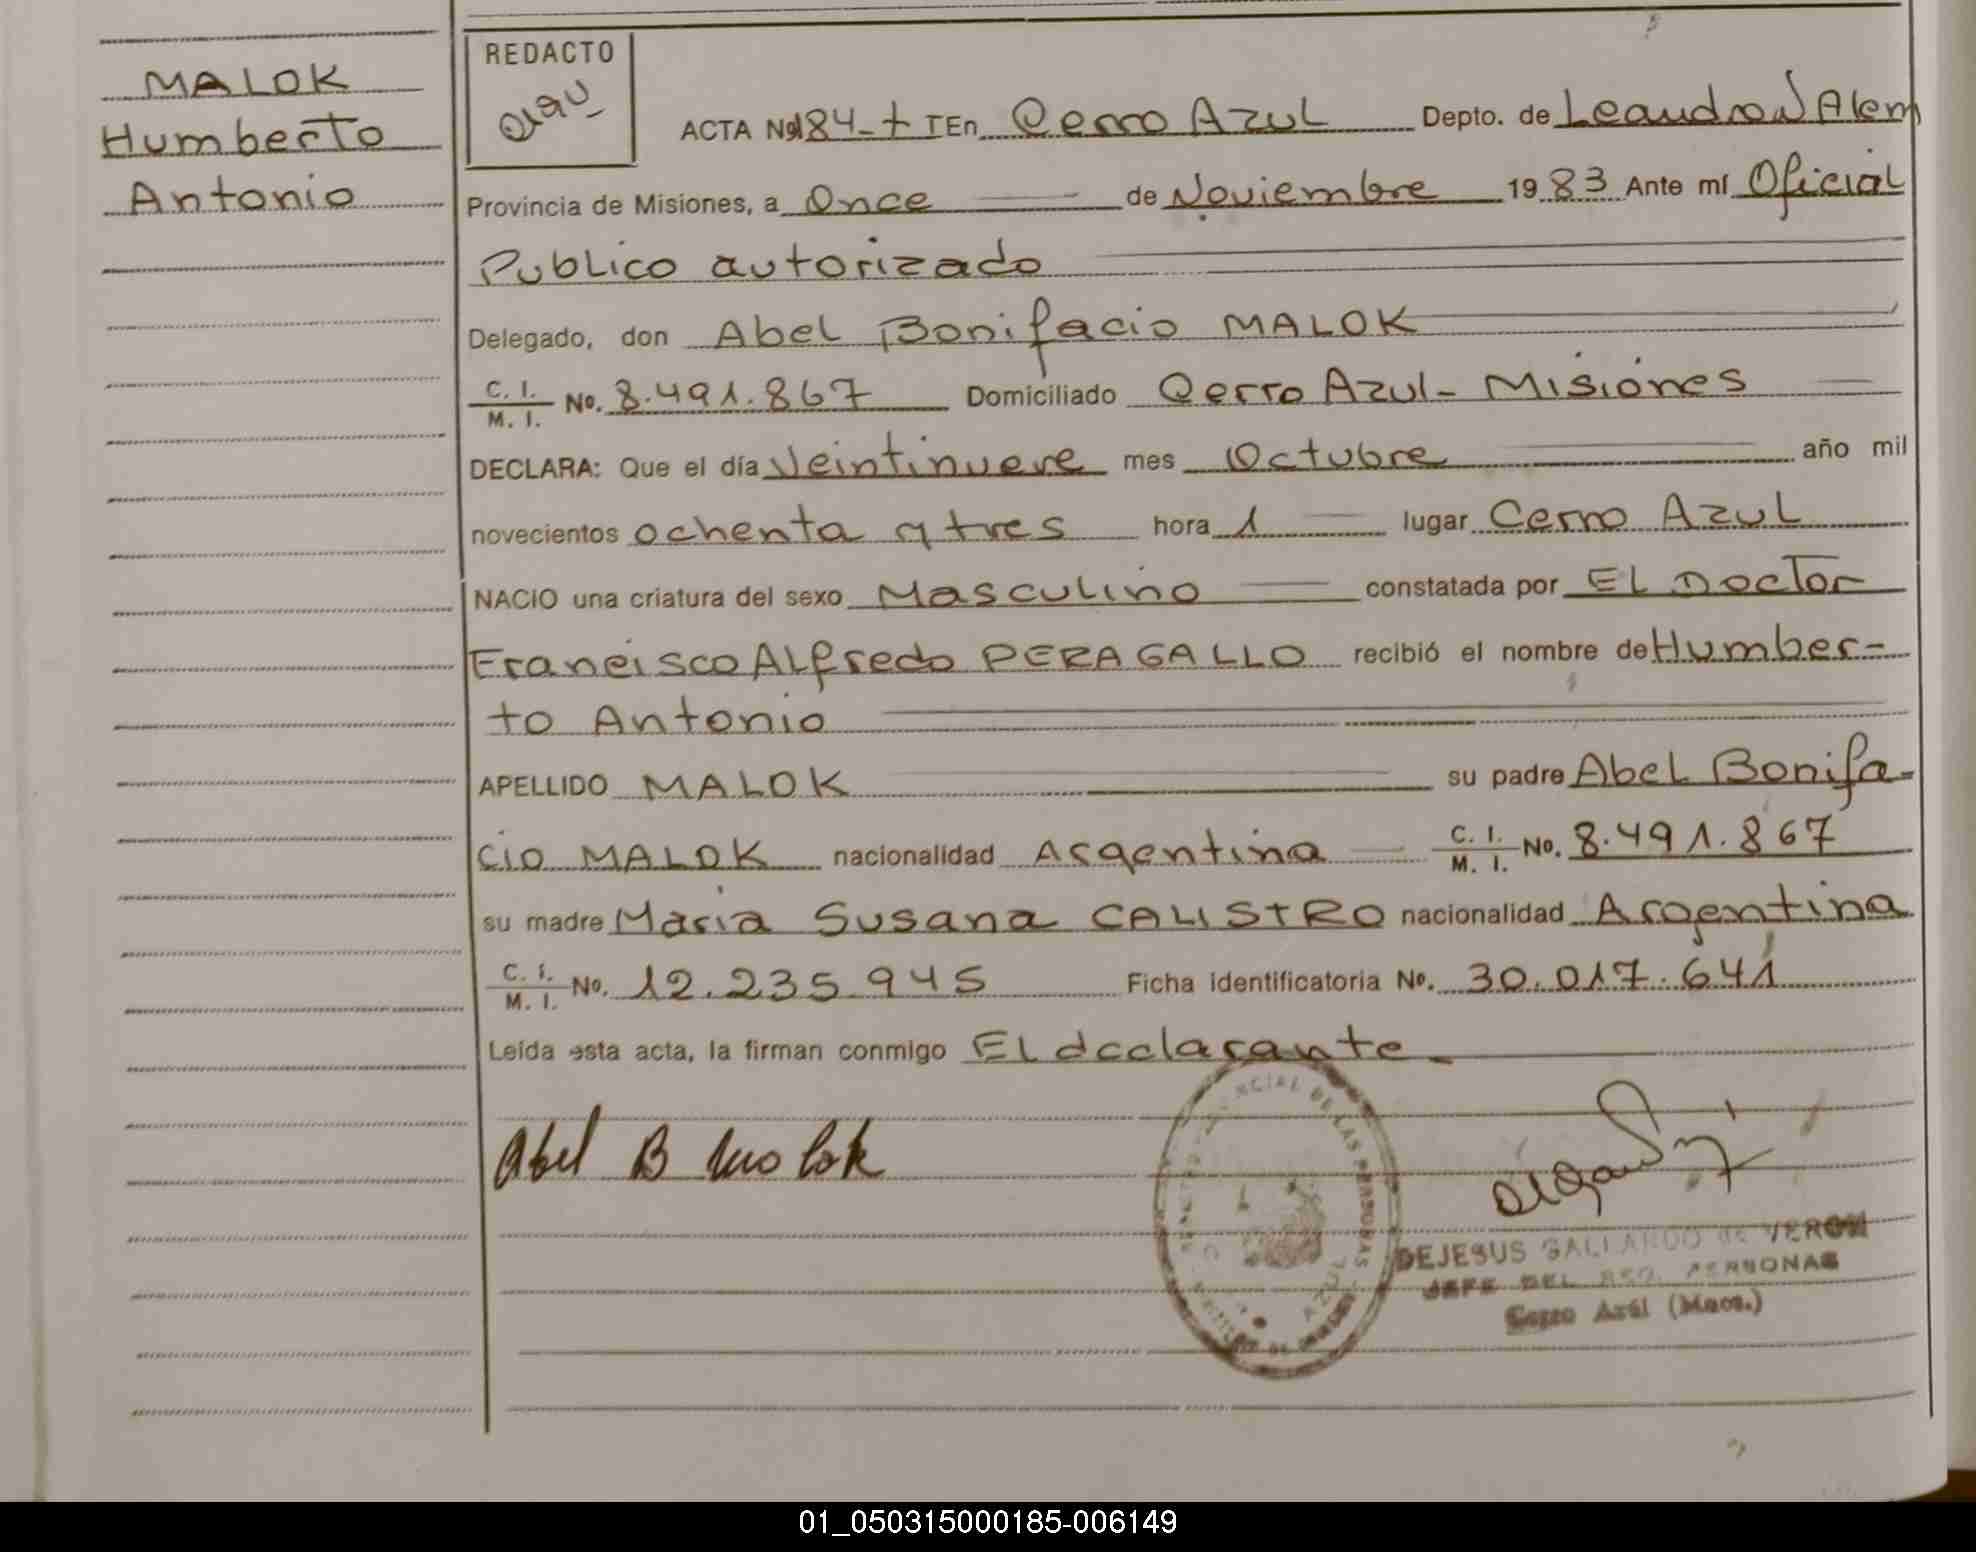 MALOK
Humberto
Antonio
REDACTO
ACTA No 184-tI En Cerro Azul Depto. de Leandro N Alem
Provincia de Misiones, a Once de Noviembre 1983 Ante mí Oficial
Publico autorizado
Delegado, don Abel Bonifacio MALOK
C. I. / M. I. No. 8.491.867 Domiciliado Cerro Azul - Misiones
DECLARA: Que el día Veintinueve mes Octubre año mil
novecientos ochenta y tres hora 1 lugar Cerro Azul
NACIO una criatura del sexo Masculino constatada por El Doctor
Francisco Alfredo PERAGALLO recibió el nombre de Humber-
to Antonio
APELLIDO MALOK su padre Abel Bonifa-
cio MALOK nacionalidad Argentina C. I. / M. I. No. 8.491.867
su madre Maria Susana CALISTRO nacionalidad Argentina
C. I. / M. I. No. 12.235.945 Ficha identificatoria No. 30.017.641
Leída esta acta, la firman conmigo El declarante
Abel B Malok
DE LAS PERSONAS
AZUL
DEJESUS GALLARDO de VERON
JEFE DEL REG. PERSONAS
Cerro Azúl (Mnes.)
01_050315000185-006149